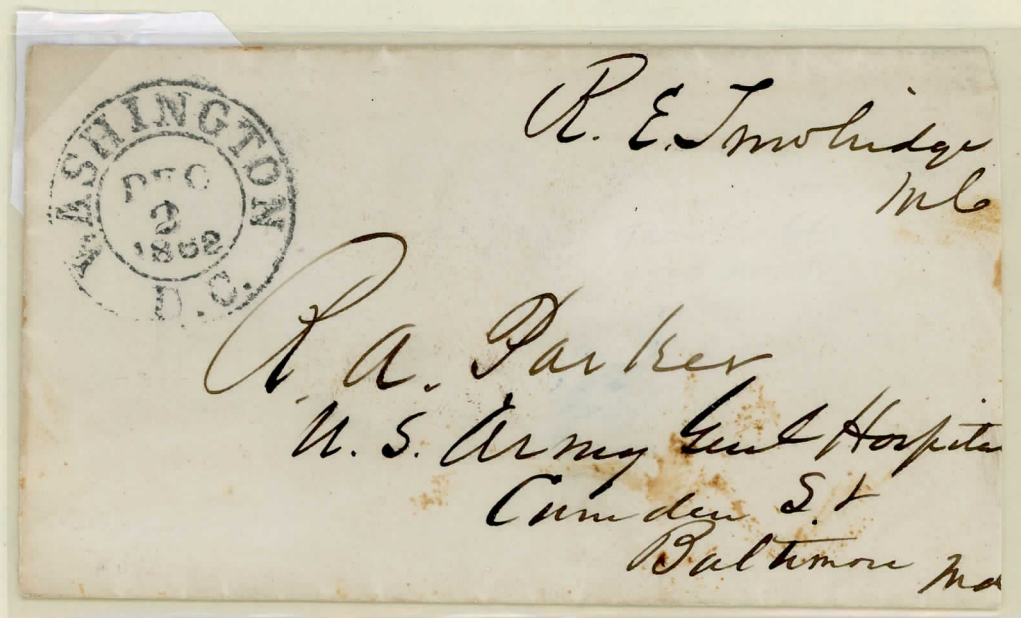 WASHINGTON
DEC
2
1862
D.C.
R. E. Trowbridge
MC
R. A. Parker
U. S. Army Genl Hospita
Camden St
Baltimore Md